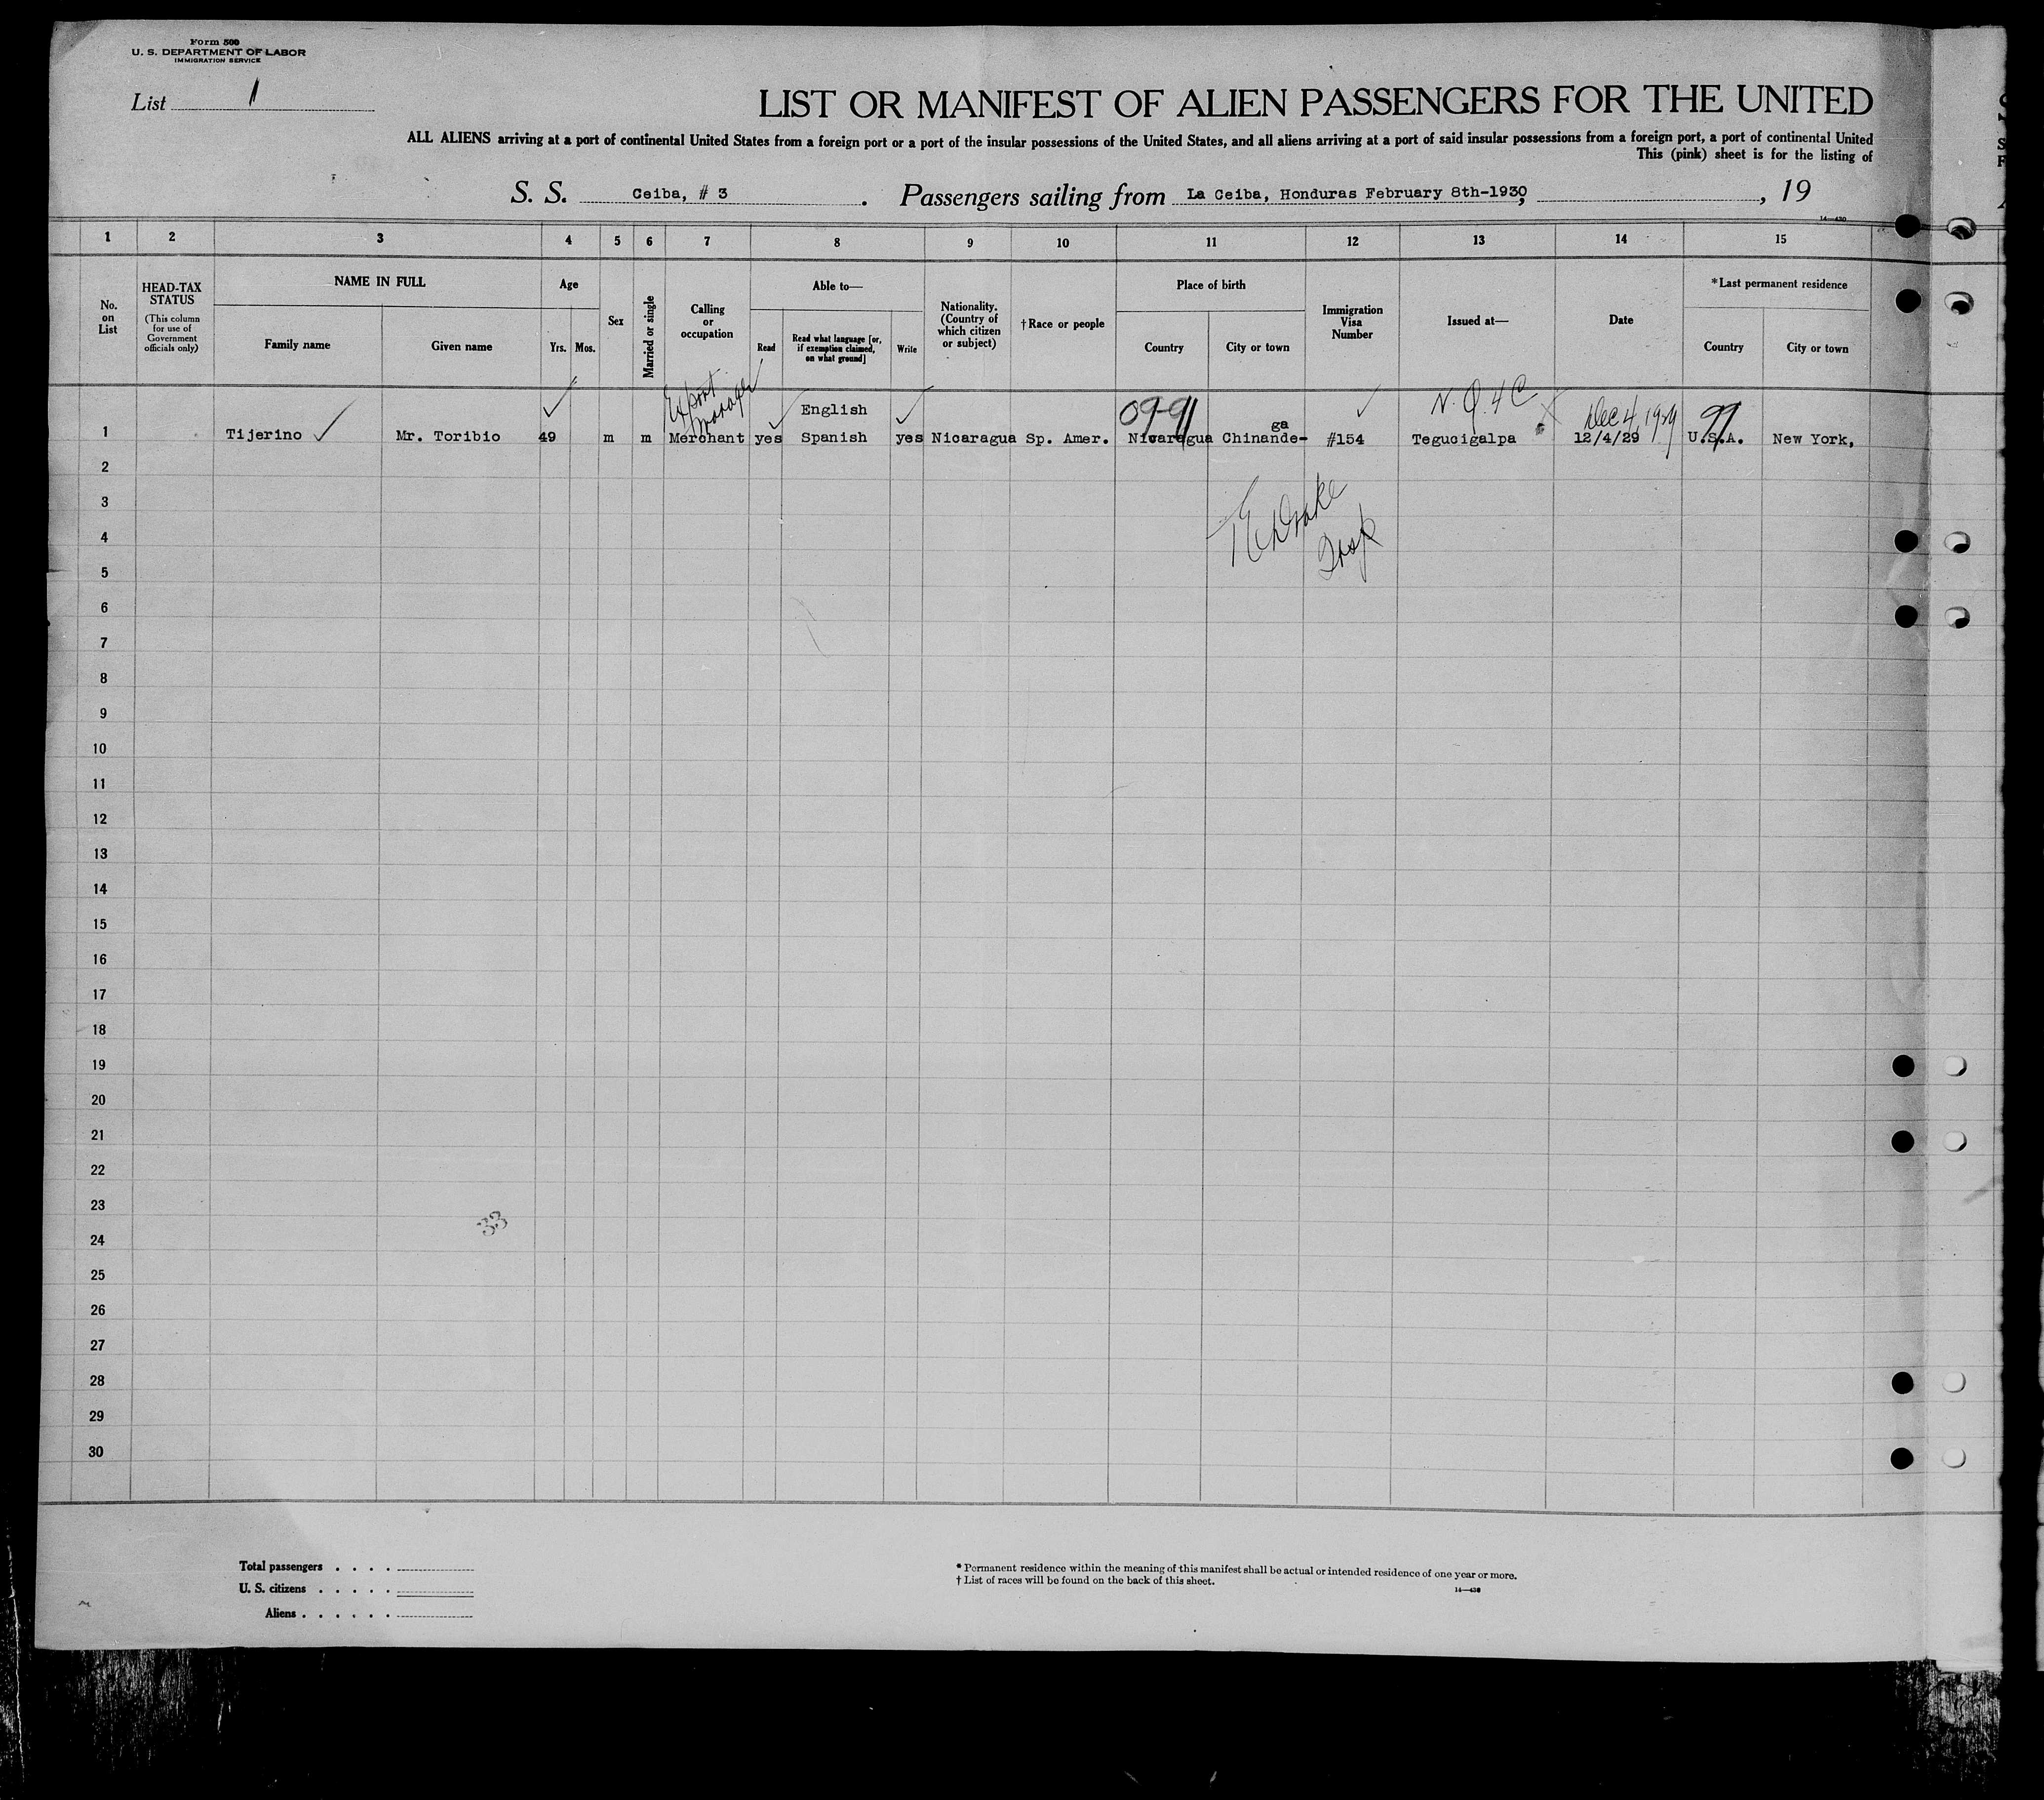 Form 500
U. S. DEPARTMENT OF LABOR
IMMIGRATION SERVICE
List 1
LIST OR MANIFEST OF ALIEN PASSENGERS FOR THE UNITED
ALL ALIENS arriving at a port of continental United States from a foreign port or a port of the insular possessions of the United States, and all aliens arriving at a port of said insular possessions from a foreign port, a port of continental United
This (pink) sheet is for the listing of
S. S. Ceiba, # 3 . Passengers sailing from La Ceiba, Honduras February 8th-1930, , 19
14—430
1 2 3 4 5 6 7 8 9 10 11 12 13 14 15
No. on List
HEAD-TAX STATUS
(This column for use of Government officials only)
NAME IN FULL
Family name
Given name
Age
Yrs. Mos.
Sex
Married or single
Calling or occupation
Able to—
Read
Read what language [or, if exemption claimed, on what ground]
Write
Nationality. (Country of which citizen or subject)
†Race or people
Place of birth
Country
City or town
Immigration Visa Number
Issued at—
Date
*Last permanent residence
Country
City or town
Export manager
English
09-91
ga
N. Q. 4 C
Dec 4, 1929
99
1 Tijerino Mr. Toribio 49 m m Merchant yes Spanish yes Nicaragua Sp. Amer. Nicaragua Chinande- #154 Tegucigalpa 12/4/29 U.S.A. New York,
2
3
Drake
4
Insp
5
6
7
8
9
10
11
12
13
14
15
16
17
18
19
20
21
22
23
33
24
25
26
27
28
29
30
Total passengers . . . .
U. S. citizens . . . . .
Aliens . . . . . .
* Permanent residence within the meaning of this manifest shall be actual or intended residence of one year or more.
† List of races will be found on the back of this sheet.
14—430